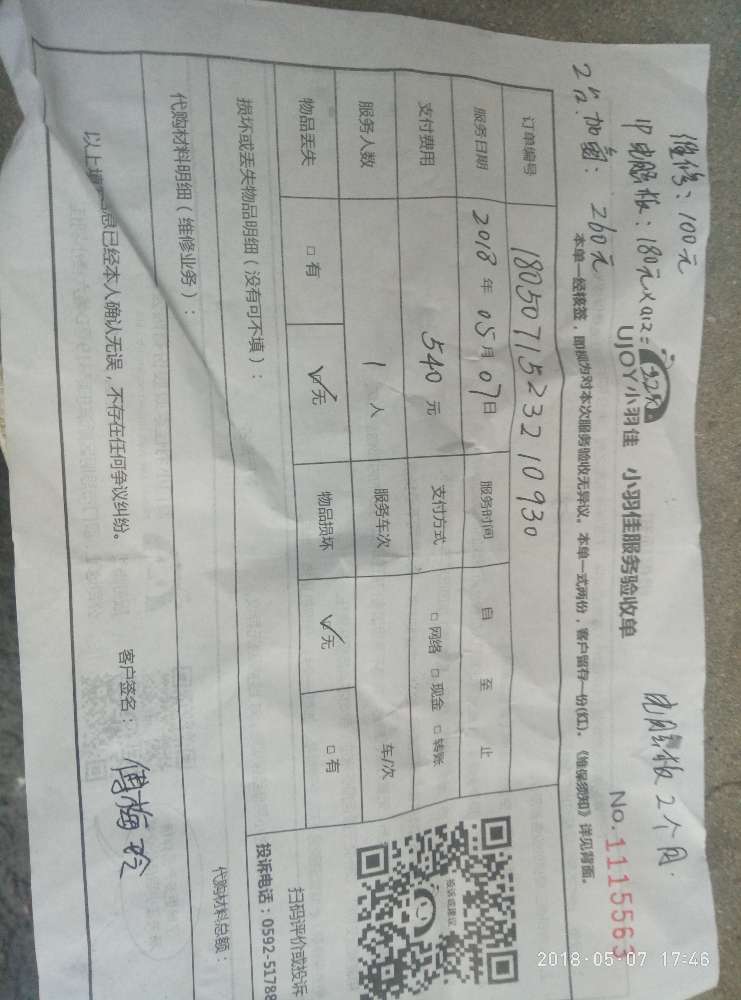 维修：100元
电脑板2个月.
UJOY小羽佳 小羽佳服务验收单
No.1115563
2次加氟：260元
本单一经核签，即视为对本次服务验收无异议。本单一式两份，客户留存一份(红)。《维保须知》详见背面。
订单编号 1805071523210930
服务日期 2018年05月07日 服务时间 自 至 止
支付费用 540元 支付方式 □网络 □现金 □转账
服务人数 1人 服务车次 车/次
物品丢失 □有 ☑无 物品损坏 ☑无 □有
损坏或丢失物品明细（没有可不填）：
代购材料明细（维修业务）：
代购材料总额：
扫码评价或投诉
投诉电话：0592-51788
已经本人确认无误，不存在任何争议纠纷。
客户签名：傅梅玲
2018-05-07 17:46